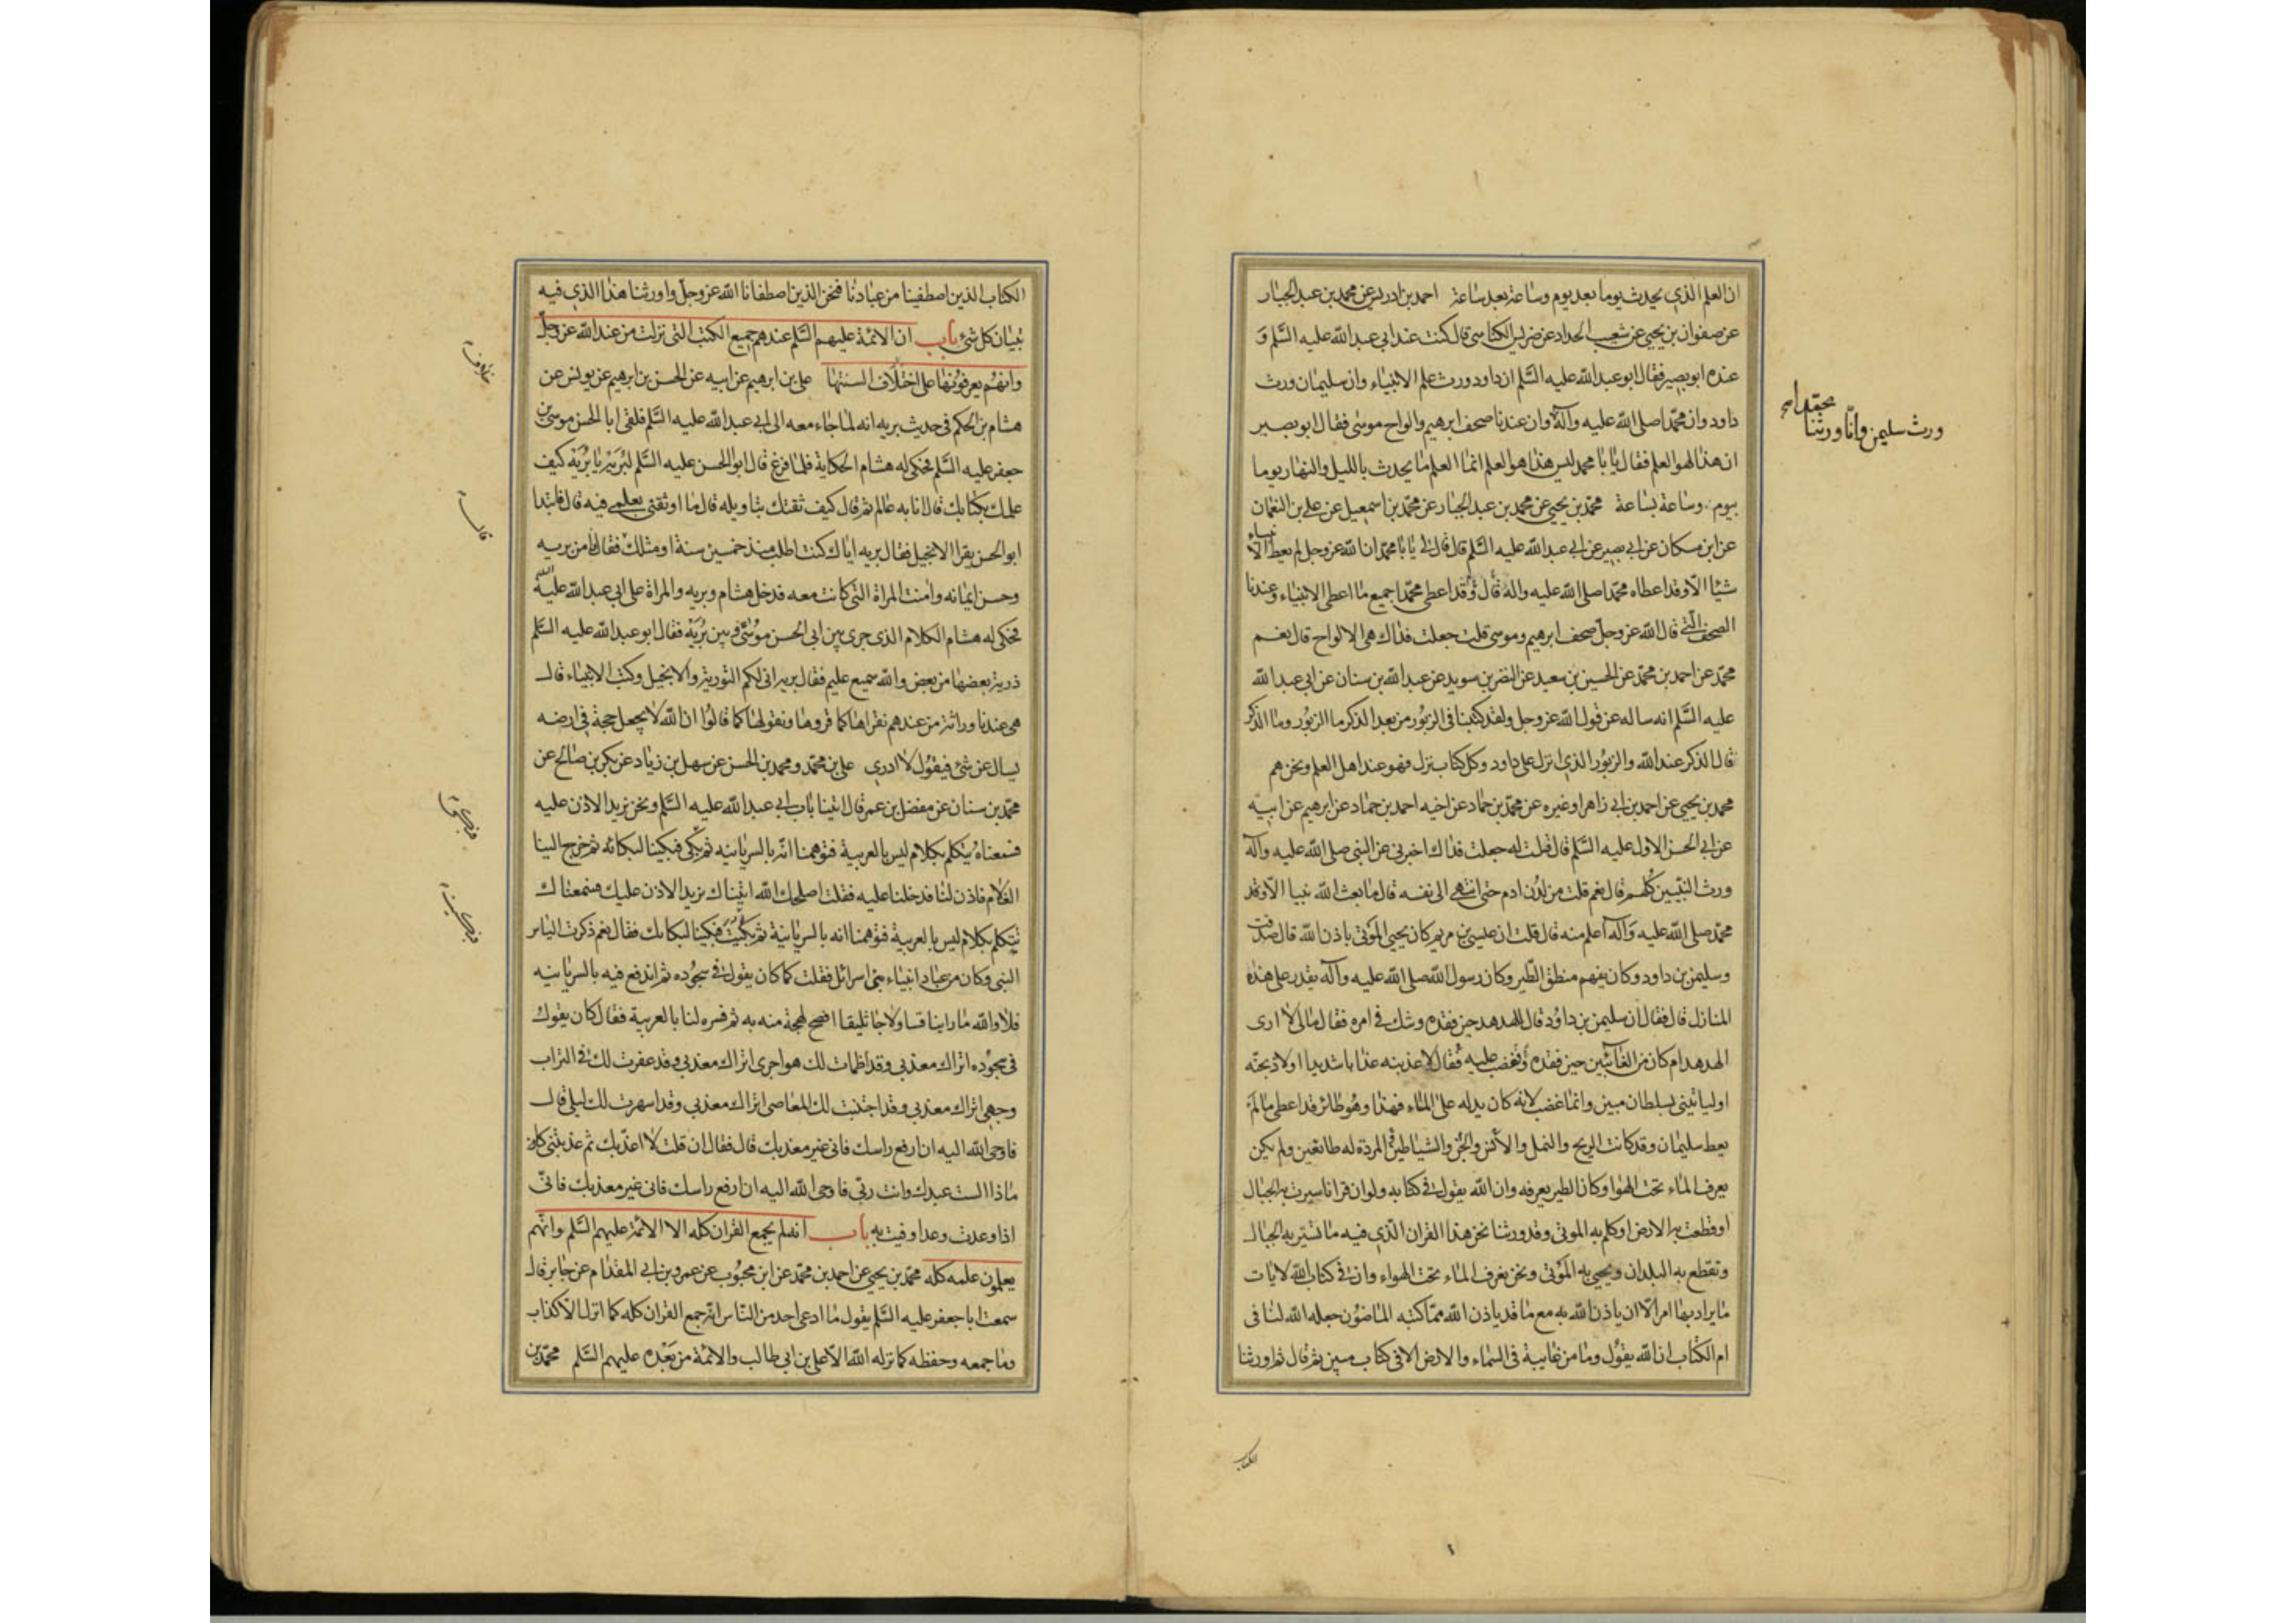 ان العلم الذي يحدث يوما بعد يوم وساعة بعد ساعة احمد بن ادريس عن محمد بن عبد الجبار
عن صفوان بن يحيى عن شعيب الحداد عن ضريس الكناسى قال كنت عند ابى عبد الله عليه السَّلم وَ
عنده ابو بصير فقال ابو عبد الله عليه السَّلم ان داود ورث علم الانبياء وان سليمان ورث
داود وان محمّدا صلى الله عليه وآله وان عندنا صحف ابرهيم والواح موسى فقال ابو بصير
ورث سليمن وانّا ورثنا
ان هذا لهو العلم فقال يا با محمد ليس هذا هو العلم انما العلم ما يحدث بالليل والنهار يوما
بيوم وساعة بساعة محمّد بن يحيى عن محمد بن عبد الجبار عن محمّد بن اسمعيل عن على بن النعمان
عن ابن مسكان عن ابى بصير عن ابى عبد الله عليه السَّلم قال قال لى يا با محمّد ان الله عز وجل لم يعط الانبياء
شيئا الّا وقد اعطاه محمّدا صلى الله عليه واله قال وَقد اعطى محمّدا جميع ما اعطى الانبياء وعندنا
الصحف الّتي قال الله عز وجلّ صحف ابرهيم وموسى قلت جعلت فداك هى الالواح قال نعم
محمّد عن احمد بن محمّد عن الحسين بن سعيد عن النضر بن سويد عن عبد الله بن سنان عن ابى عبد الله
عليه السَّلم انه ساله عن قول الله عز وجل ولقد كتبنا فى الزبُور من بعد الذكر ما الزبُور وما الذكر
قال الذكر عند الله والزبُور الذي انزل على داود وكل كتاب نزل فهو عند اهل العلم ونحن هم
محمد بن يحيى عن احمد بن ابى زاهر او غيره عن محمّد بن حماد عن اخيه احمد بن حماد عن ابرهيم عن ابيه
عن ابى الحسن الاول عليه السَّلم قال قلت له جعلت فداك اخبرنى عن النبى صلى الله عليه وآله
ورث النبّيين كلهم قال نعم قلت من لدُن ادم حتى انتهى الى نفسه قال ما بعث الله نبيا الّا وقد
محمّد صلى الله عليه وَآله اعلم منه قال قلت ان عيسى بن مريم كان يحيى الموتى باذن الله قال صدقت
وسليمن بن داود وكان يفهم منطق الطّير وكان رسول الله صلى الله عليه وآله يقدر على هذه
المنازل قال فقال ان سليمن بن داوُد قال للهدهد حين فقده وشك فى امره فقال مالى لا ارى
الهدهد ام كان من الغآئبين حين فقده وَغضب عليه فقال لاعذبنه عذابا شديدا اولاذبحنّه
اوليا تينى بسلطان مبين وانما غضب لانه كان يدله على الماء فهذا وهُو طائر قد اعطى ما لمَ
يعط سليمان وقد كانت الريح والنمل والانس والجن والشياطين المردة له طائعين ولم يكن
يعرف الماء تحت الهوا وكان الطير يعرفه وان الله يقول فى كتابه ولو ان قرانا سيرت به الجبال
او قطعت به الارض او كلم به الموتى وقد ورثنا نحن هذا القران الّذي فيه ما تسّير به الجبال
وتقطع به البلدان ويحيى به الموتى ونحن نعرف الماء تحت الهواء وان فى كتاب الله لايات
ما يراد بها امر الّا ان ياذن الله به مع ما قد ياذن الله ممّا كتبه الماضوُن جعله الله لنا فى
ام الكتاب ان الله يقوُل وما من غايبة فى السماء والارض الا فى كتاب مبين ثم قال ثم اورثنا
الكتاب
الكتاب الذين اصطفينا من عبادنا فنحن الذين اصطفانا الله عز وجلّ واورثنا هذا الذي فيه
تبيان كل شئ باب ان الائمة عليهم السَّلم عندهم جميع الكتب التى نزلت من عند الله عز وجلّ
وانهُم يعرفوُنها على اختلاف السنتها على بن ابرهيم عن ابيه عن الحسن بن ابرهيم عن يونس عن
هشام بن الحكم فى حديث بريه انه لما جاء معه الى ابى عبد الله عليه السَّلم فلقى ابا الحسن موسى بن
جعفر عليه السَّلم فحكى له هشام الحكاية فلما فرغ قال ابو الحسن عليه السَّلم لبُريه يا بُريَه كيف
علمك بكتابك قال انا به عالم ثم قال كيف ثقتك بتاويله قال ما اوثقنى بعلمى فيه قال فابتدا
ابو الحسن يقرا الانجيل فقال بريه اياك كنت اطلب منذ خمسين سنة او مثلك فقال فامن بريه
وحسن ايمانه وامنت المراة التى كانت معه فدخل هشام وبريه والمراة على ابى عبد الله عليه السّلم
فحكى له هشام الكلام الذى جرى بين ابى الحسن موُسى وبين بُريَه فقال ابو عبد الله عليه السَّلم
ذرية بعضها من بعض والله سميع عليم فقال بريه انى لكم التورية والانجيل وكتب الانبياء قال
هى عندنا وراثة من عندهم نقراها كما قروها ونقولها كما قالوُا ان الله لا يجعل حجة فى ارضه
يسال عن شئ فيقوُل لا ادرى على بن محمّد ومحمد بن الحسن عن سهل بن زياد عن بكر بن صالح عن
محمّد بن سنان عن مفضل بن عمر قال اتينا باب ابى عبد الله عليه السَّلم ونحن نريد الاذن عليه
فسمعناهُ يتكلم بكلام ليس بالعربية فتوهمنا انّه بالسريانيه ثم بكى فبكينا لبكائه ثم خرج الينا
الغلام فاذن لنا فدخلنا عليه فقلت اصلحك الله اتيناك نريد الاذن عليك فسمعناك
تتكلم بكلام ليس بالعربية فتوهمنا انه بالسريانية ثم بكيت فبكينا لبكائك فقال نعم ذكرت الياس
النبى وكان من عباد انبياء بنى اسرائل فقلت كما كان يقول فى سجوُده ثم اندفع فيه بالسريانيه
فلا والله ما راينا قسا ولا جاثليقا افصح لهجة منه به ثم فسره لنا بالعربية فقال كان يقول
فى سجوُده اتراك معذبى وقد اظمات لك هواجرى اتراك معذبى وقد عفرت لك فى التراب
وجهى اتراك معذبى وقد اجتنبت لك المعاصى اتراك معذبى وقد اسهرت لك ليلى قال
فاوحى الله اليه ان ارفع راسك فانى غير معذبك قال فقال ان قلت لا اعذّبك ثم عذبتنى كان
ماذا الست عبدك وانت ربّى فاوحى الله اليه ان ارفع راسك فانى غير معذبك فانّى
اذا وعدت وعدا وفيت به باب انه لم يجمع القران كله الا الائمة عليهم السَّلم وانّهم
يعلموُن علمه كله محمّد بن يحيى عن احمد بن محمّد عن ابن محبُوب عن عمرو بن ابى المقدام عن جابر قال
سمعت ابا جعفر عليه السَّلم يقول ما ادعى احد من النّاس انّه جمع القران كله كما انزل الّا كذاب
وما جمعه وحفظه كما نزله الله الّا على بن ابى طالب والائمة من بَعْده عليهم السَّلم محمّد بن